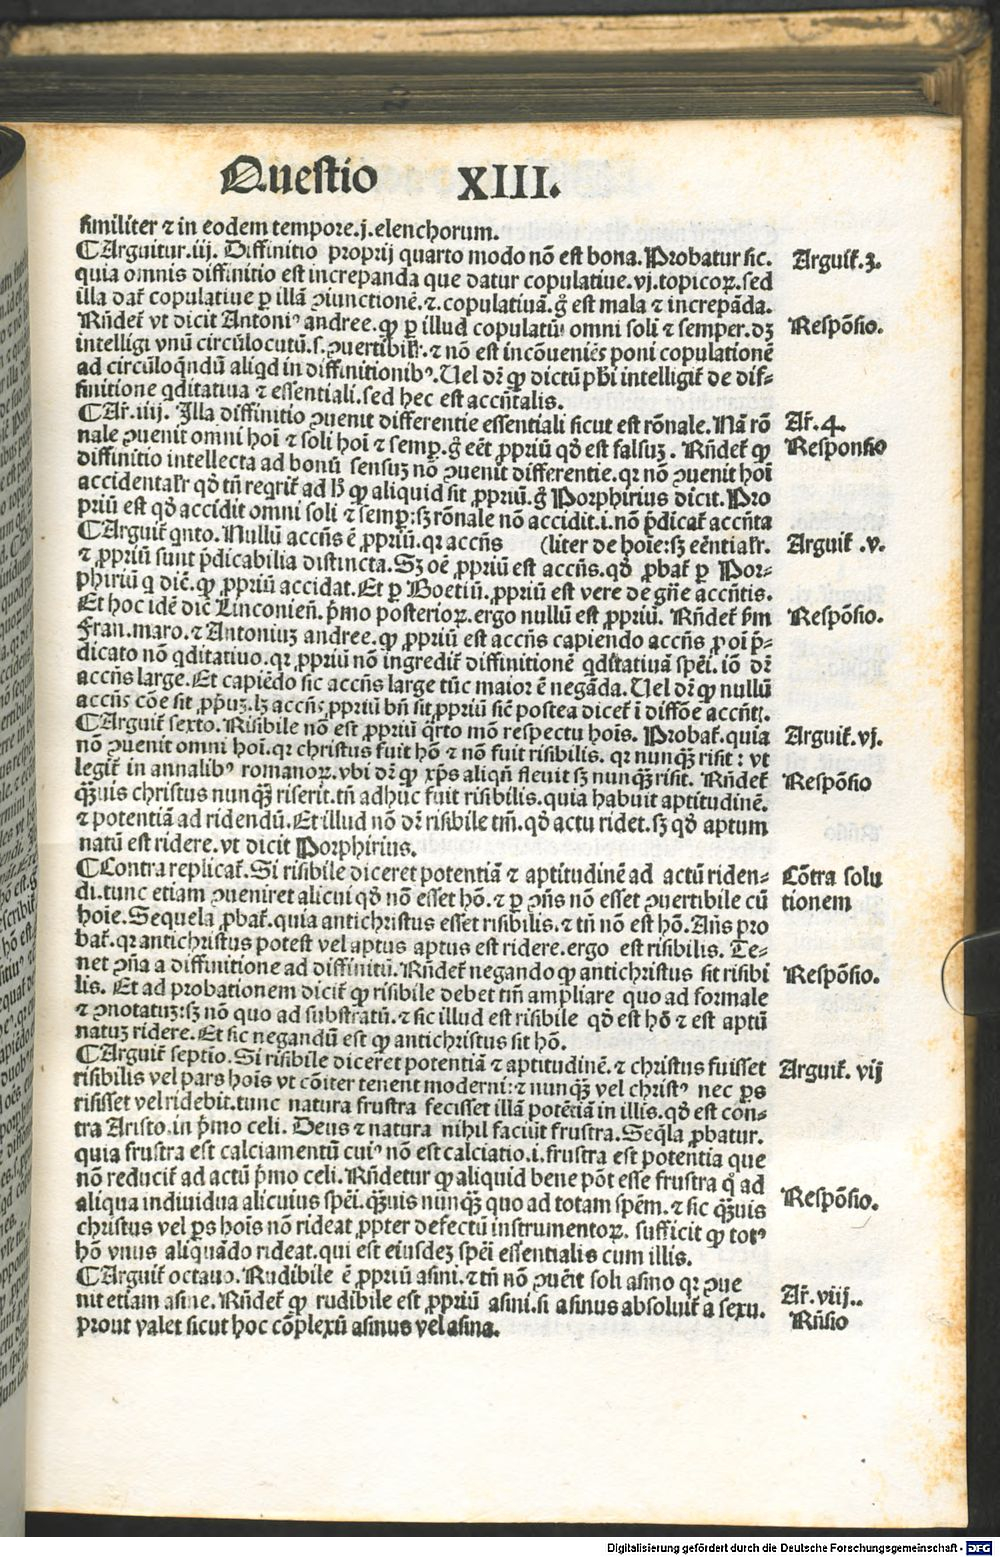 Questio XIII.
similiter ⁊ in eodem tempore.j.elenchorum.
¶Arguitur.iij. Diffinitio proprij quarto modo nō est bona. Probatur sic.
Arguiť.3.
quia omnis diffinitio est increpanda que datur copulatiue.vj.topicoꝝ.sed
illa dať copulatiue ꝑ illā ꝯiunctionē.⁊.copulatiuā.g̊ est mala ⁊ increpāda.
Rñdeť vt dicit Antoniꝰ andree.ꝙ ꝑ illud copulatū omni soli ⁊ semper.dꝫ
Respōsio.
intelligi vnū circūlocutū.s.ꝯuertibilr̄.⁊ nō est incōueniēs poni copulationē
ad circūloq̄ndū aliqd in diffinitionibꝰ. Uel dr̄ ꝙ dictū phi intelligiť de dif-
finitione qditatiua ⁊ essentiali.sed hec est accn̄talis.
¶Ař.iiij. Illa diffinitio ꝯuenit differentie essentiali sicut est rōnale. Nā rō
Ař.4.
nale ꝯuenit omni hoi ⁊ soli hoi ⁊ semꝑ.g̊ eēt ꝓpriū qđ est falsuꝫ. Rñdeť ꝙ
Responsio
diffinitio intellecta ad bonū sensuꝫ nō ꝯuenit differentie.qr nō ꝯuenit hoi
accidentalr̄ qđ tn̄ reqriť ad hͦ ꝙ aliquid sit ꝓpriū.g̊ Porphirius dicit. Pro
priū est qđ accidit omni soli ⁊ semꝑ:sꝫ rōnale nō accidit.i.nō p̄dicať accn̄ta
¶Arguiť qnto. Nullū accn̄s ē ꝓpriū.qr accn̄s (liter de hoīe:sꝫ eēntialr̄.
Arguiť .v.
⁊ ꝓpriū sunt p̄dicabilia distincta. Sꝫ oē ꝓpriū est accn̄s.qđ ꝓbať ꝑ Por-
phiriū q dic̄.ꝙ ꝓpriū accidat. Et ꝑ Boetiū.ꝓpriū est vere de gn̄e accn̄tis.
Et hoc idē dic̄ Linconien̄.p̄mo posterioꝝ.ergo nullū est ꝓpriū. Rñdeť p̄m
Respōsio.
Fran.maro.⁊ Antoniuꝫ andree.ꝙ ꝓpriū est accn̄s capiendo accn̄s ꝓ oī p̄-
dicato nō qditatiuo.qr ꝓpriū nō ingrediť diffinitionē qdstatiuā spēi.iō dr̄
accn̄s large. Et capiēdo sic accn̄s large tūc maior ē negāda. Uel dr̄ ꝙ nullū
accn̄s cōe sit ꝓp̄uꝫ.lꝫ accn̄s ꝓpriū bn̄ sit ꝓpriū sic̄ postea diceť ī diffōe accn̄tꝭ.
¶Arguiť sexto. Risibile nō est ꝓpriū q̄rto mō respectu hoīs. Probať.quia
Arguiť.vj.
nō ꝯuenit omni hoī.qr christus fuit hō ⁊ nō fuit risibilis. qr nunqꝫ risit: vt
legiť in annalibꝰ romanoꝝ.vbi dr̄ ꝙ xp̄s aliqn̄ fleuit sꝫ nunqꝫ risit. Rñdeť
Respōsio
qꝫuis christus nunqꝫ riserit.tn̄ adhuc fuit risibilis.quia habuit aptitudinē.
⁊ potentiā ad ridendū. Et illud nō dr̄ risibile tm̄.qđ actu ridet.sꝫ qđ aptum
natū est ridere.vt dicit Porphirius.
¶Contra replicať. Si risibile diceret potentiā ⁊ aptitudinē ad actū riden-
Cōtra solu
di.tunc etiam ꝯueniret alicui qđ nō esset hō.⁊ ꝑ ꝯn̄s nō esset ꝯuertibile cū
tionem
hoīe. Sequela ꝓbať.quia antichristus esset risibilis.⁊ tn̄ nō est hō. Añs pro
bať.qr antichristus potest vel aptus aptus est ridere.ergo est risibilis. Te-
net ꝯn̄a a diffinitione ad diffinitū. Rñdeť negando ꝙ antichristus sit risibi
Respōsio.
lis. Et ad probationem diciť ꝙ risibile debet tm̄ ampliare quo ad formale
⁊ ꝯnotatuꝫ:sꝫ nō quo ad substratū.⁊ sic illud est risibile qđ est hō ⁊ est aptū
natuꝫ ridere. Et sic negandū est ꝙ antichristus sit hō.
¶Arguiť septio. Si risibile diceret potentiā ⁊ aptitudinē.⁊ christus fuisset
Arguiť. vij
risibilis vel pars hoīs vt cōiter tenent moderni:⁊ nunqꝫ vel christꝰ nec ꝑs
risisset vel ridebit.tunc natura frustra fecisset illā potētiā in illis.qđ est con-
tra Aristo.in p̄mo celi. Deus ⁊ natura nihil faciūt frustra. Seq̄la ꝓbatur.
quia frustra est calciamentū cuiꝰ nō est calciatio.i.frustra est potentia que
non reduciť ad actū p̄mo celi. Rñdetur ꝙ aliquid bene pōt esse frustra qͦ ad
Respōsio.
aliqua indiuidua alicuius spēi.qꝫuis nunqꝫ quo ad totam spēm.⁊ sic qꝫuis
christus vel ꝑs hoīs nō rideat ꝓpter defectū instrumentoꝝ. sufficit ꝙ totꝰ
hō vnus aliquādo rideat.qui est eiusdeꝫ spēi essentialis cum illis.
¶Arguiť octauo. Rudibile ē ꝓpriū asini.⁊ tn̄ nō ꝯuēit soli asino qr ꝯue
Ař.viij..
nit etiam asine. Rñdeť ꝙ rudibile est ꝓpriū asini.si asinus absoluiť a sexu.
Rn̄sio
prout valet sicut hoc cōplexū asinus vel asina.
Digitalisierung gefördert durch die Deutsche Forschungsgemeinschaft - DFG